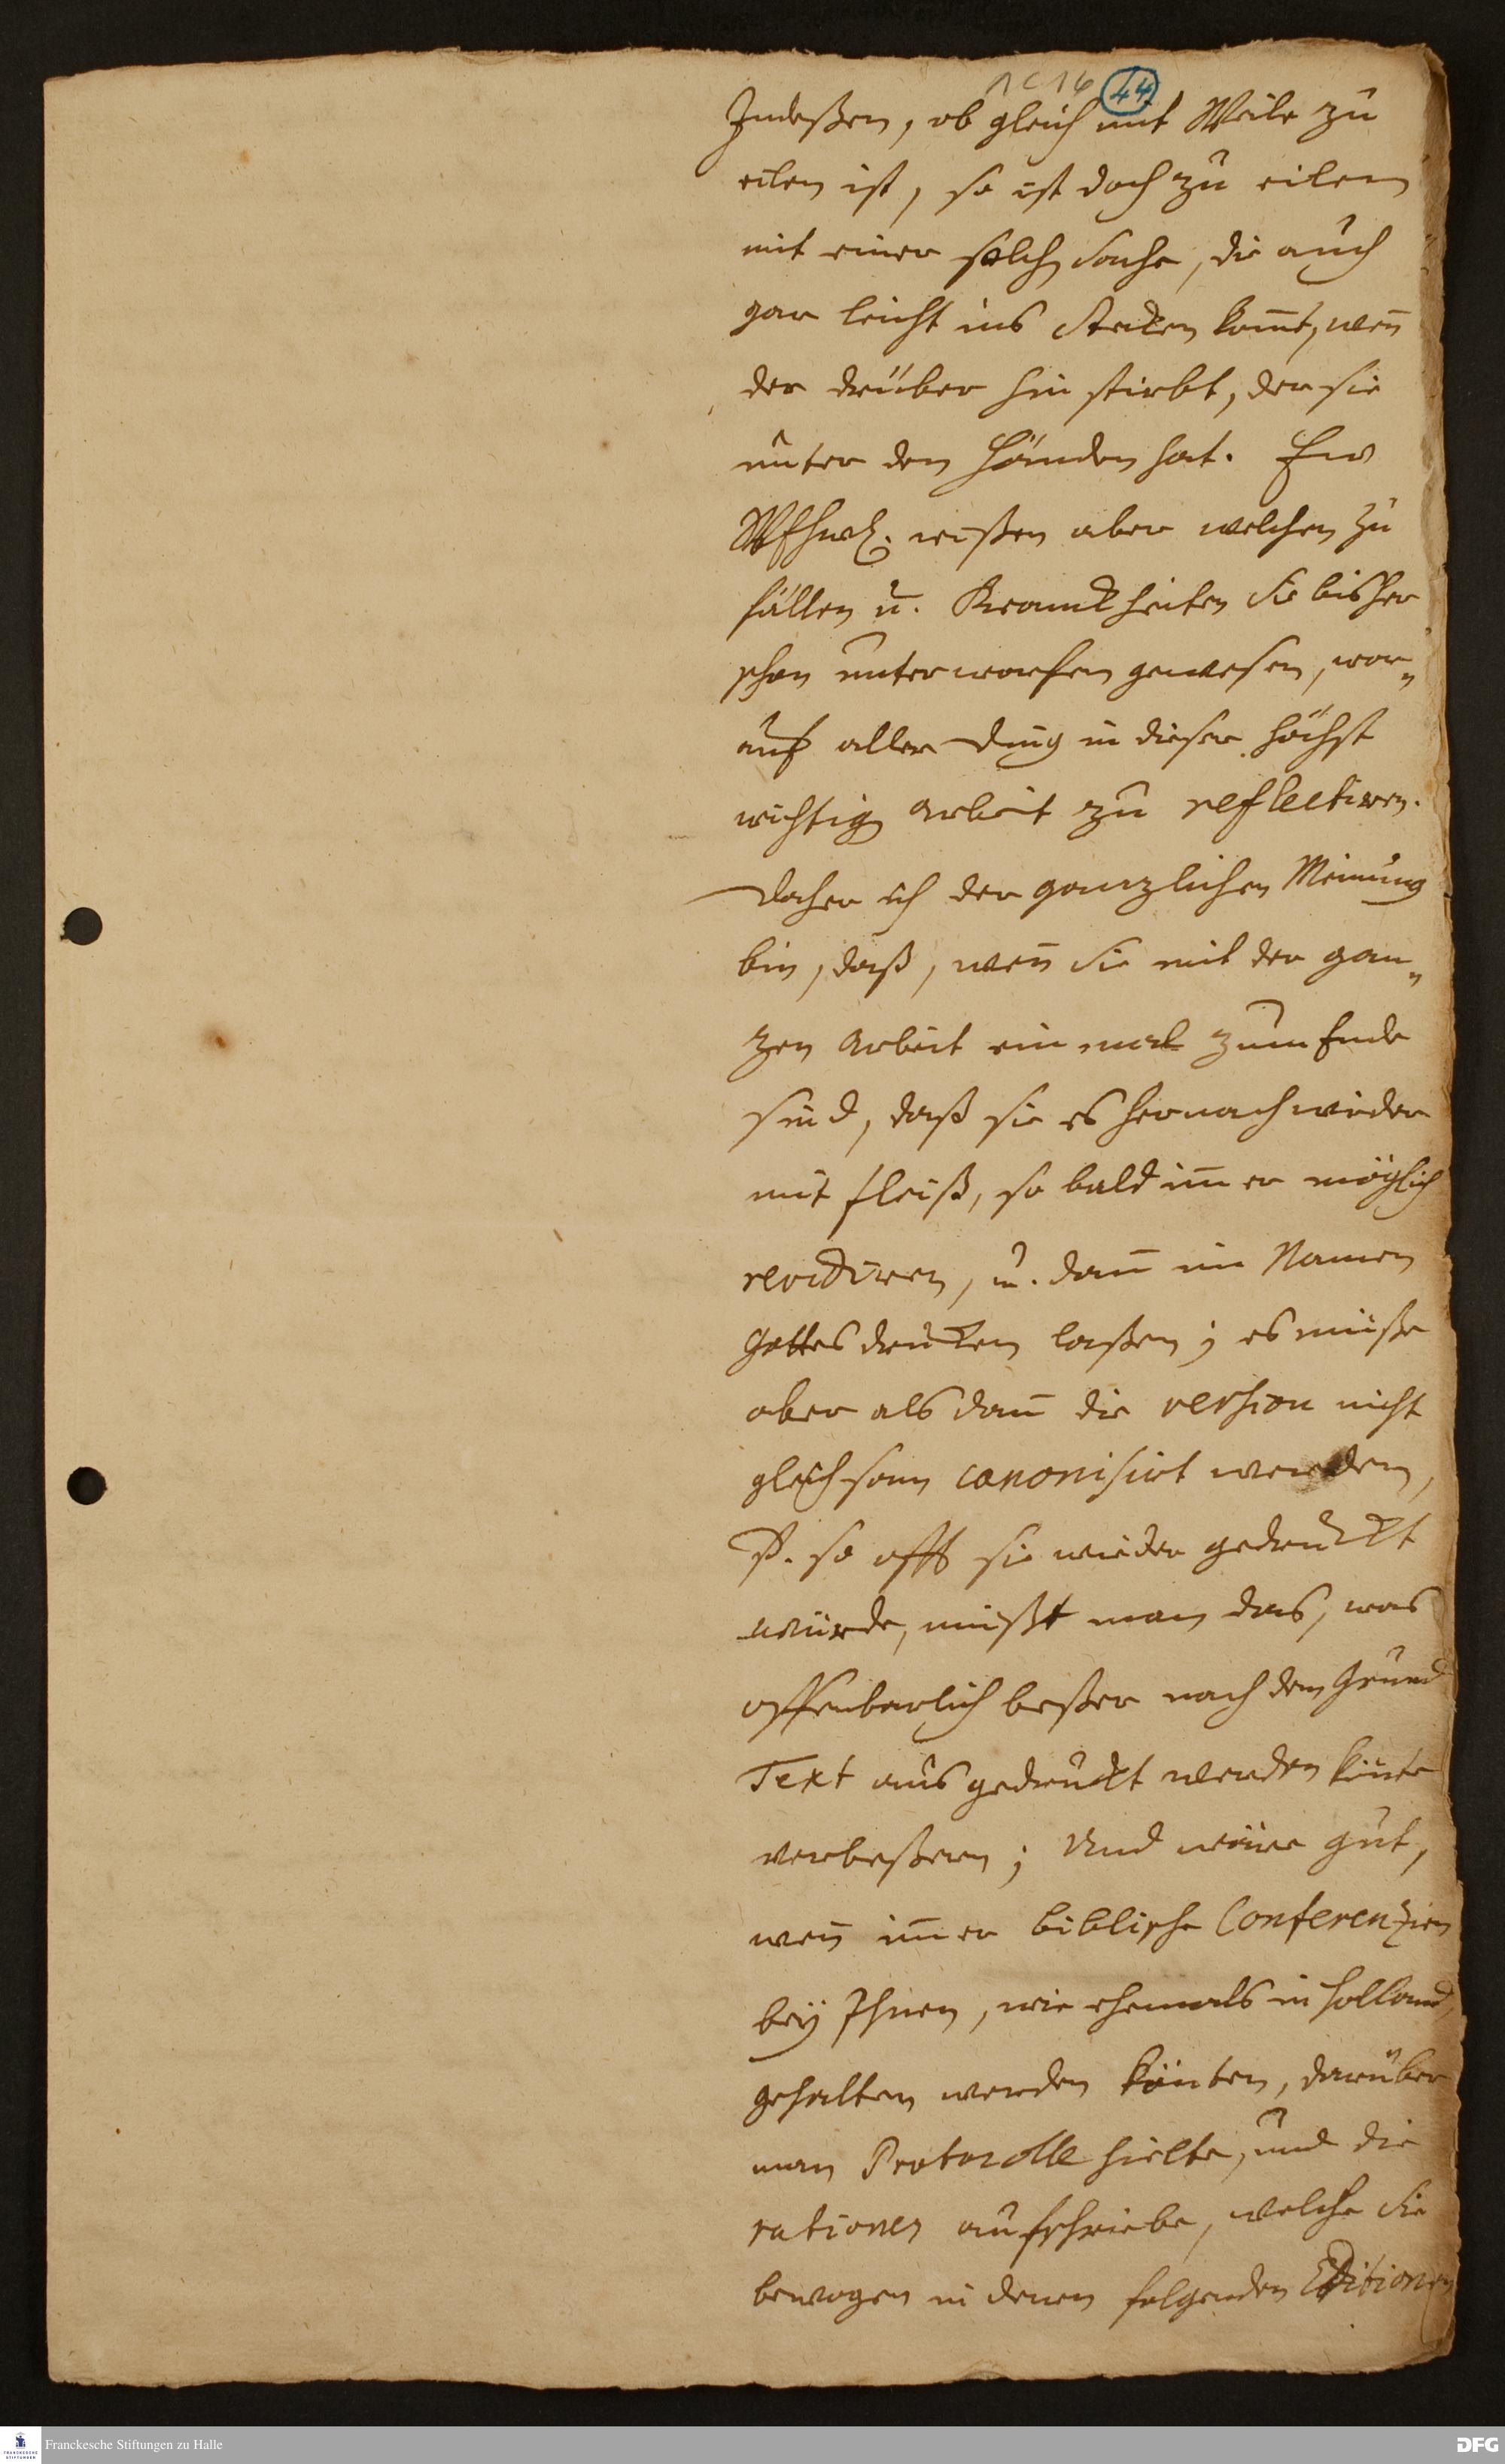 1 C 16 44
Indeßen, ob gleich mit Weile zu
eilen ist, so ist doch zu eilen
mit einer solchen Sache, die auch
gar leicht ins Stecken kom̄t, wen̄
der drüber hin stirbt, der sie
unter den Händen hat. Ew
wißen aber welchen Zu
fällen u. Kranckheiten Sie bisher
schon unterworfen gewesen, wor„
auf aller Ding in dieser höchst
wichtig Arbeit zu reflectiren.
Daher ich der gäntzlichen Meinung
bin, daß, wen̄ Sie mit der gan„
zen Arbeit ein mal zum Ende
sind, daß sie es hernach wieder
mit Fleiß, so bald im̄er möglich
revidiren, u. dan̄ im Namen
Gottes drucken laßen; es müße
aber als dan̄ die version nicht
gleichsam canonisirt werden,
so offt sie wieder gedruckt
würde, müßt man das, was
offenbarlich beßer nach dem Grund
Text ausgedruckt werden könte
verbeßern; Und wäre gut,
wen̄ im̄er biblische Conferenzien
bey Ihnen, wie ehemals in Holland,
gehalten werden könten, darüber
man Protocolle hielte, und die
rationes aufschriebe, welche Sie
bewogen in denen folgenden Editionen
Franckesche Stiftungen zu Halle
FRANCKESCHE STIFTUNGEN
DFG